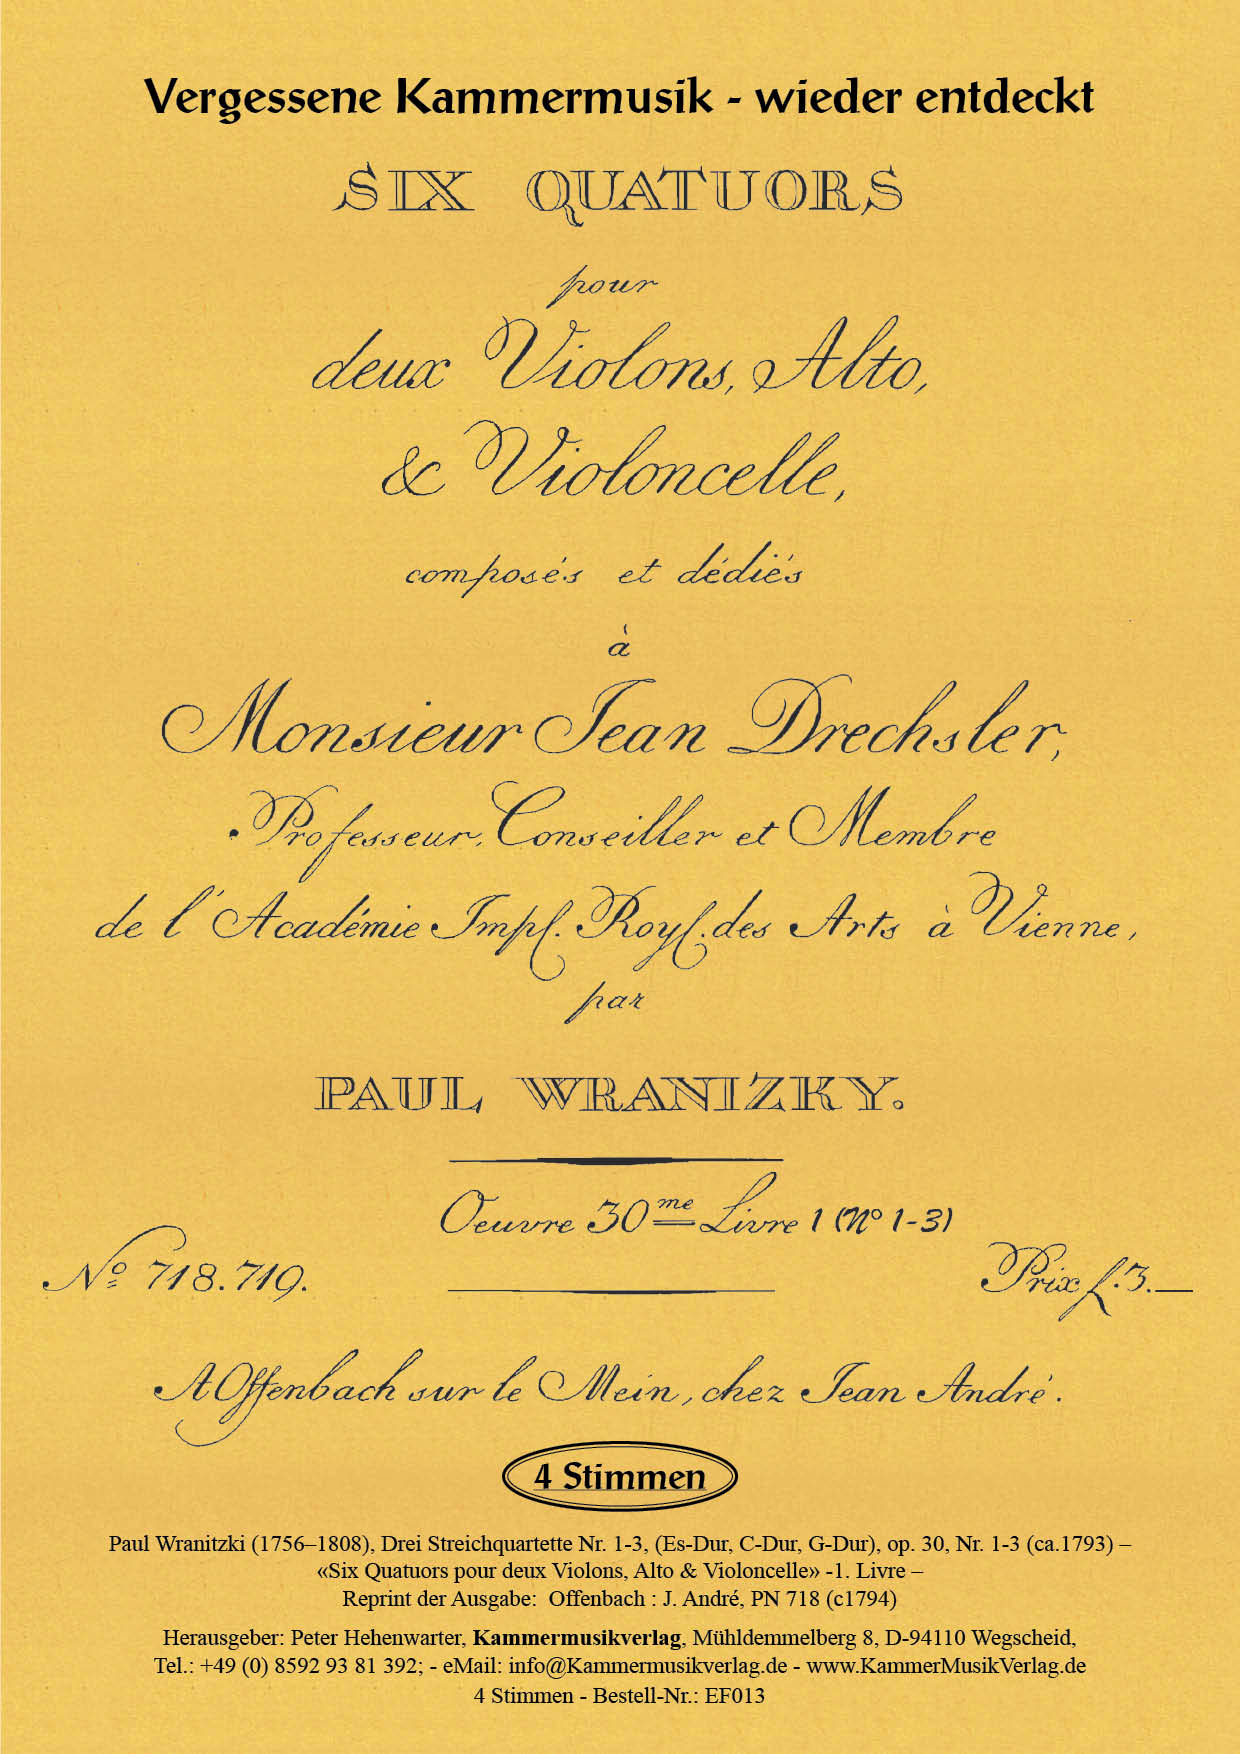 Vergessene Kammermusik - wieder entdeckt
SIX QUATUORS
pour
deux Violons, Alto,
& Violoncelle,
composés et dédiés
à
Monsieur Jean Drechsler,
Professeur, Conseiller et Membre
de l'Académie Impl. Royl. des Arts à Vienne,
par
PAUL WRANIZKY.
Oeuvre 30me Livre 1 (No 1-3)
No 718.719.
Prix f.3.—
A Offenbach sur le Mein, chez Jean André.
4 Stimmen
Paul Wranitzki (1756–1808), Drei Streichquartette Nr. 1-3, (Es-Dur, C-Dur, G-Dur), op. 30, Nr. 1-3 (ca.1793) –
«Six Quatuors pour deux Violons, Alto & Violoncelle» -1. Livre –
Reprint der Ausgabe: Offenbach : J. André, PN 718 (c1794)
Herausgeber: Peter Hehenwarter, Kammermusikverlag, Mühldemmelberg 8, D-94110 Wegscheid,
Tel.: +49 (0) 8592 93 81 392; - eMail: info@Kammermusikverlag.de - www.KammerMusikVerlag.de
4 Stimmen - Bestell-Nr.: EF013